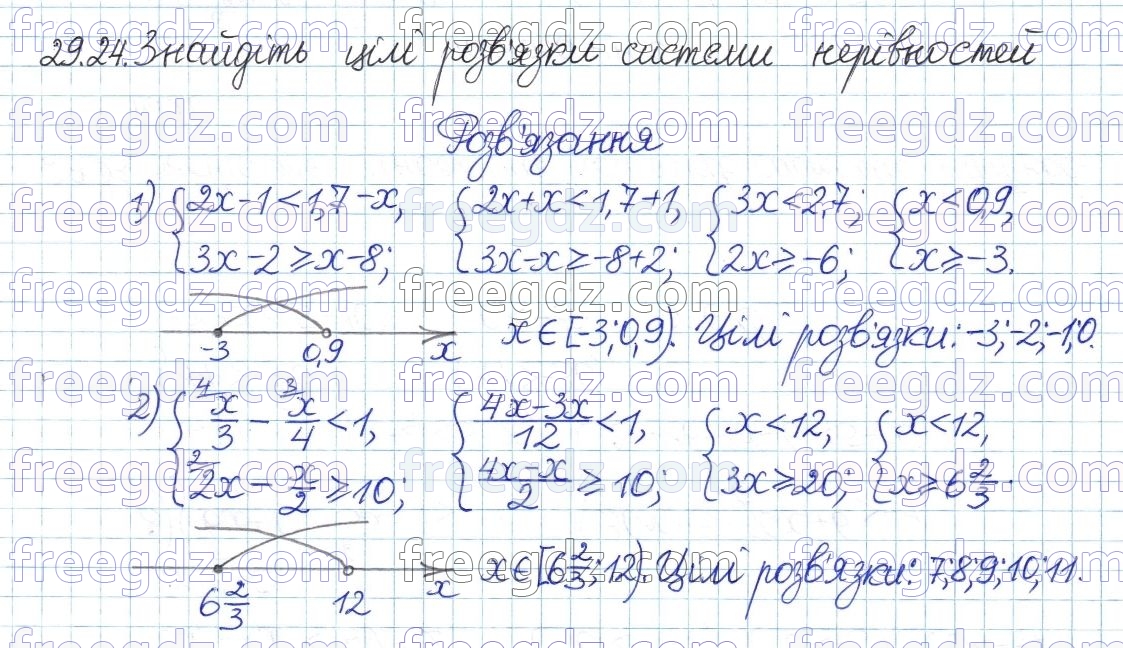 29.24. Знайдіть цілі розв'язки системи нерівностей
Розв'язання
1) {2x-1<1,7-x, {2x+x<1,7+1, {3x<2,7; {x<0,9,
3x-2≥x-8; 3x-x≥-8+2; 2x≥-6; x≥-3.
-3 0,9 x x∈[-3;0,9). Цілі розв'язки: -3;-2;-1;0.
2) {⁴x/3 - ³x/4 <1, {(4x-3x)/12 <1, {x<12, {x<12,
²2x - x/2 ≥10; (4x-x)/2 ≥ 10; 3x≥20; x≥6 2/3.
6 2/3 12 x x∈[6 2/3;12). Цілі розв'язки: 7;8;9;10;11.
freegdz.com